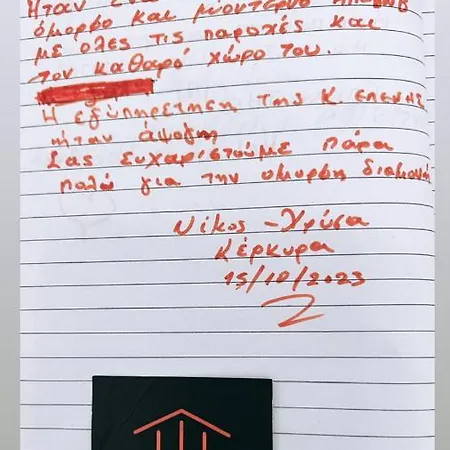 Ήταν ένα
όμορφο και μοντέρνο
με όλες τις παροχές και
τον καθαρό χώρο του.
Η εξυπηρέτηση της Κ. ελενης
ήταν άψογη
Σας ευχαριστούμε πάρα
πολύ για την όμορφη διαμονή
Νίκος - Χρύσα
Κέρκυρα
15/10/2023